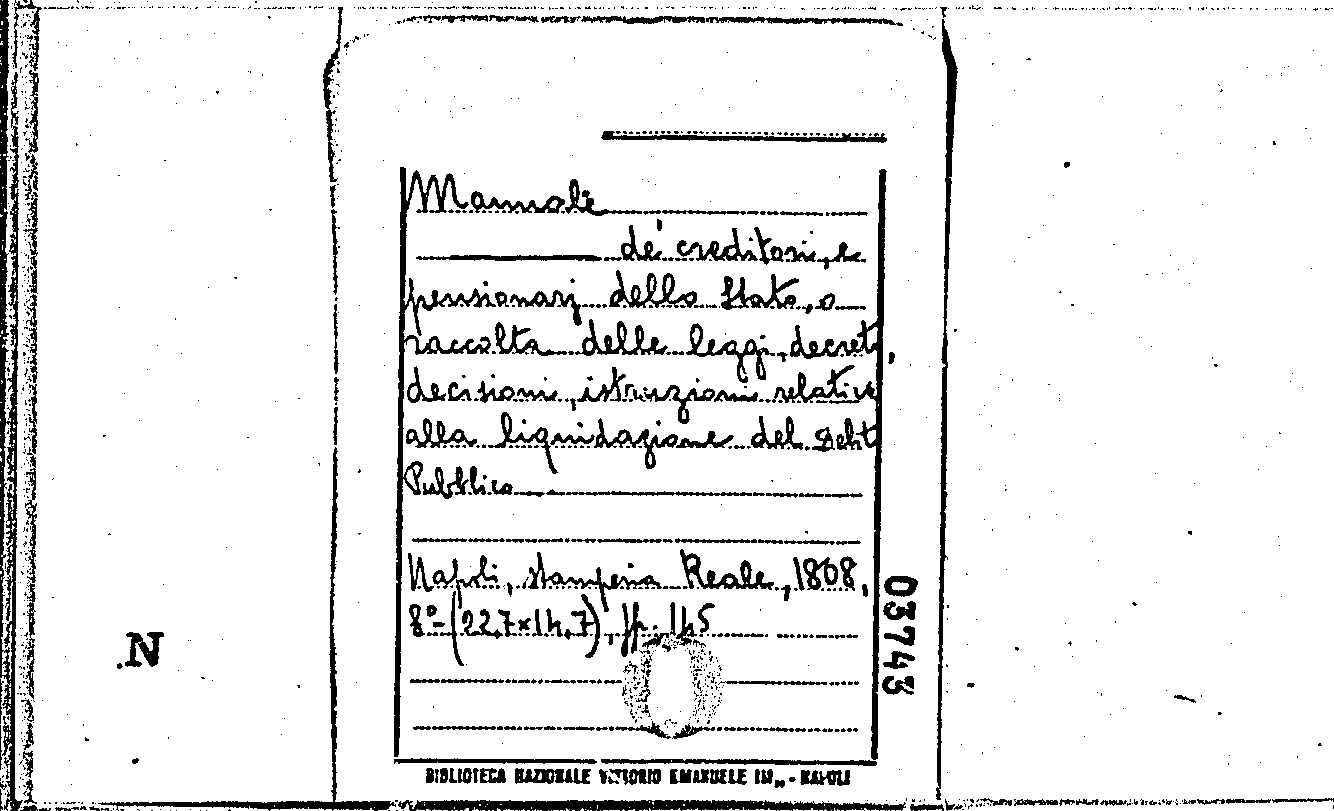 Manuale
de' creditori, e
pensionarj dello Stato, o
raccolta delle leggi, decreti,
decisioni, istruzioni relative
alla liquidazione del Debito
Pubblico
Napoli, stamperia Reale, 1808,
8° (22,7x14,7), pp. 145
03743
N
BIBLIOTECA NAZIONALE VITTORIO EMANUELE III„ - NAPOLI